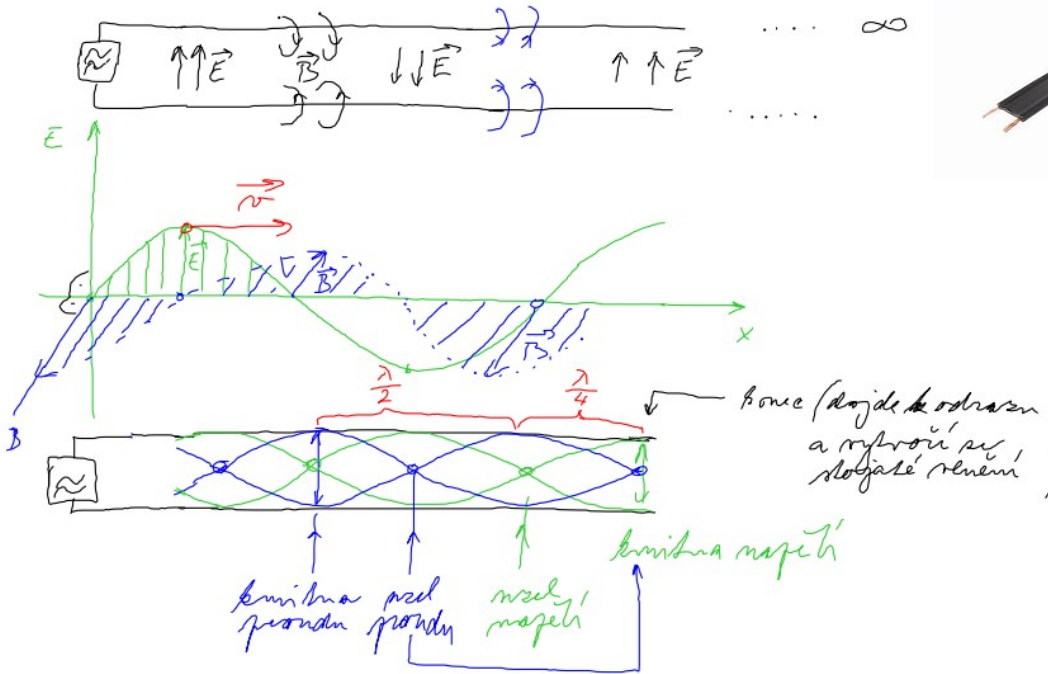 E⃗ B⃗ E⃗ E⃗ .... ∞
.....
E
v⃗
E⃗ B⃗
B⃗ x
λ/2 λ/4
B
konec (dojde k odrazu
a vytvoří se
stojaté vlnění
kmitna napětí
kmitna uzel uzel
proudu proudu napětí